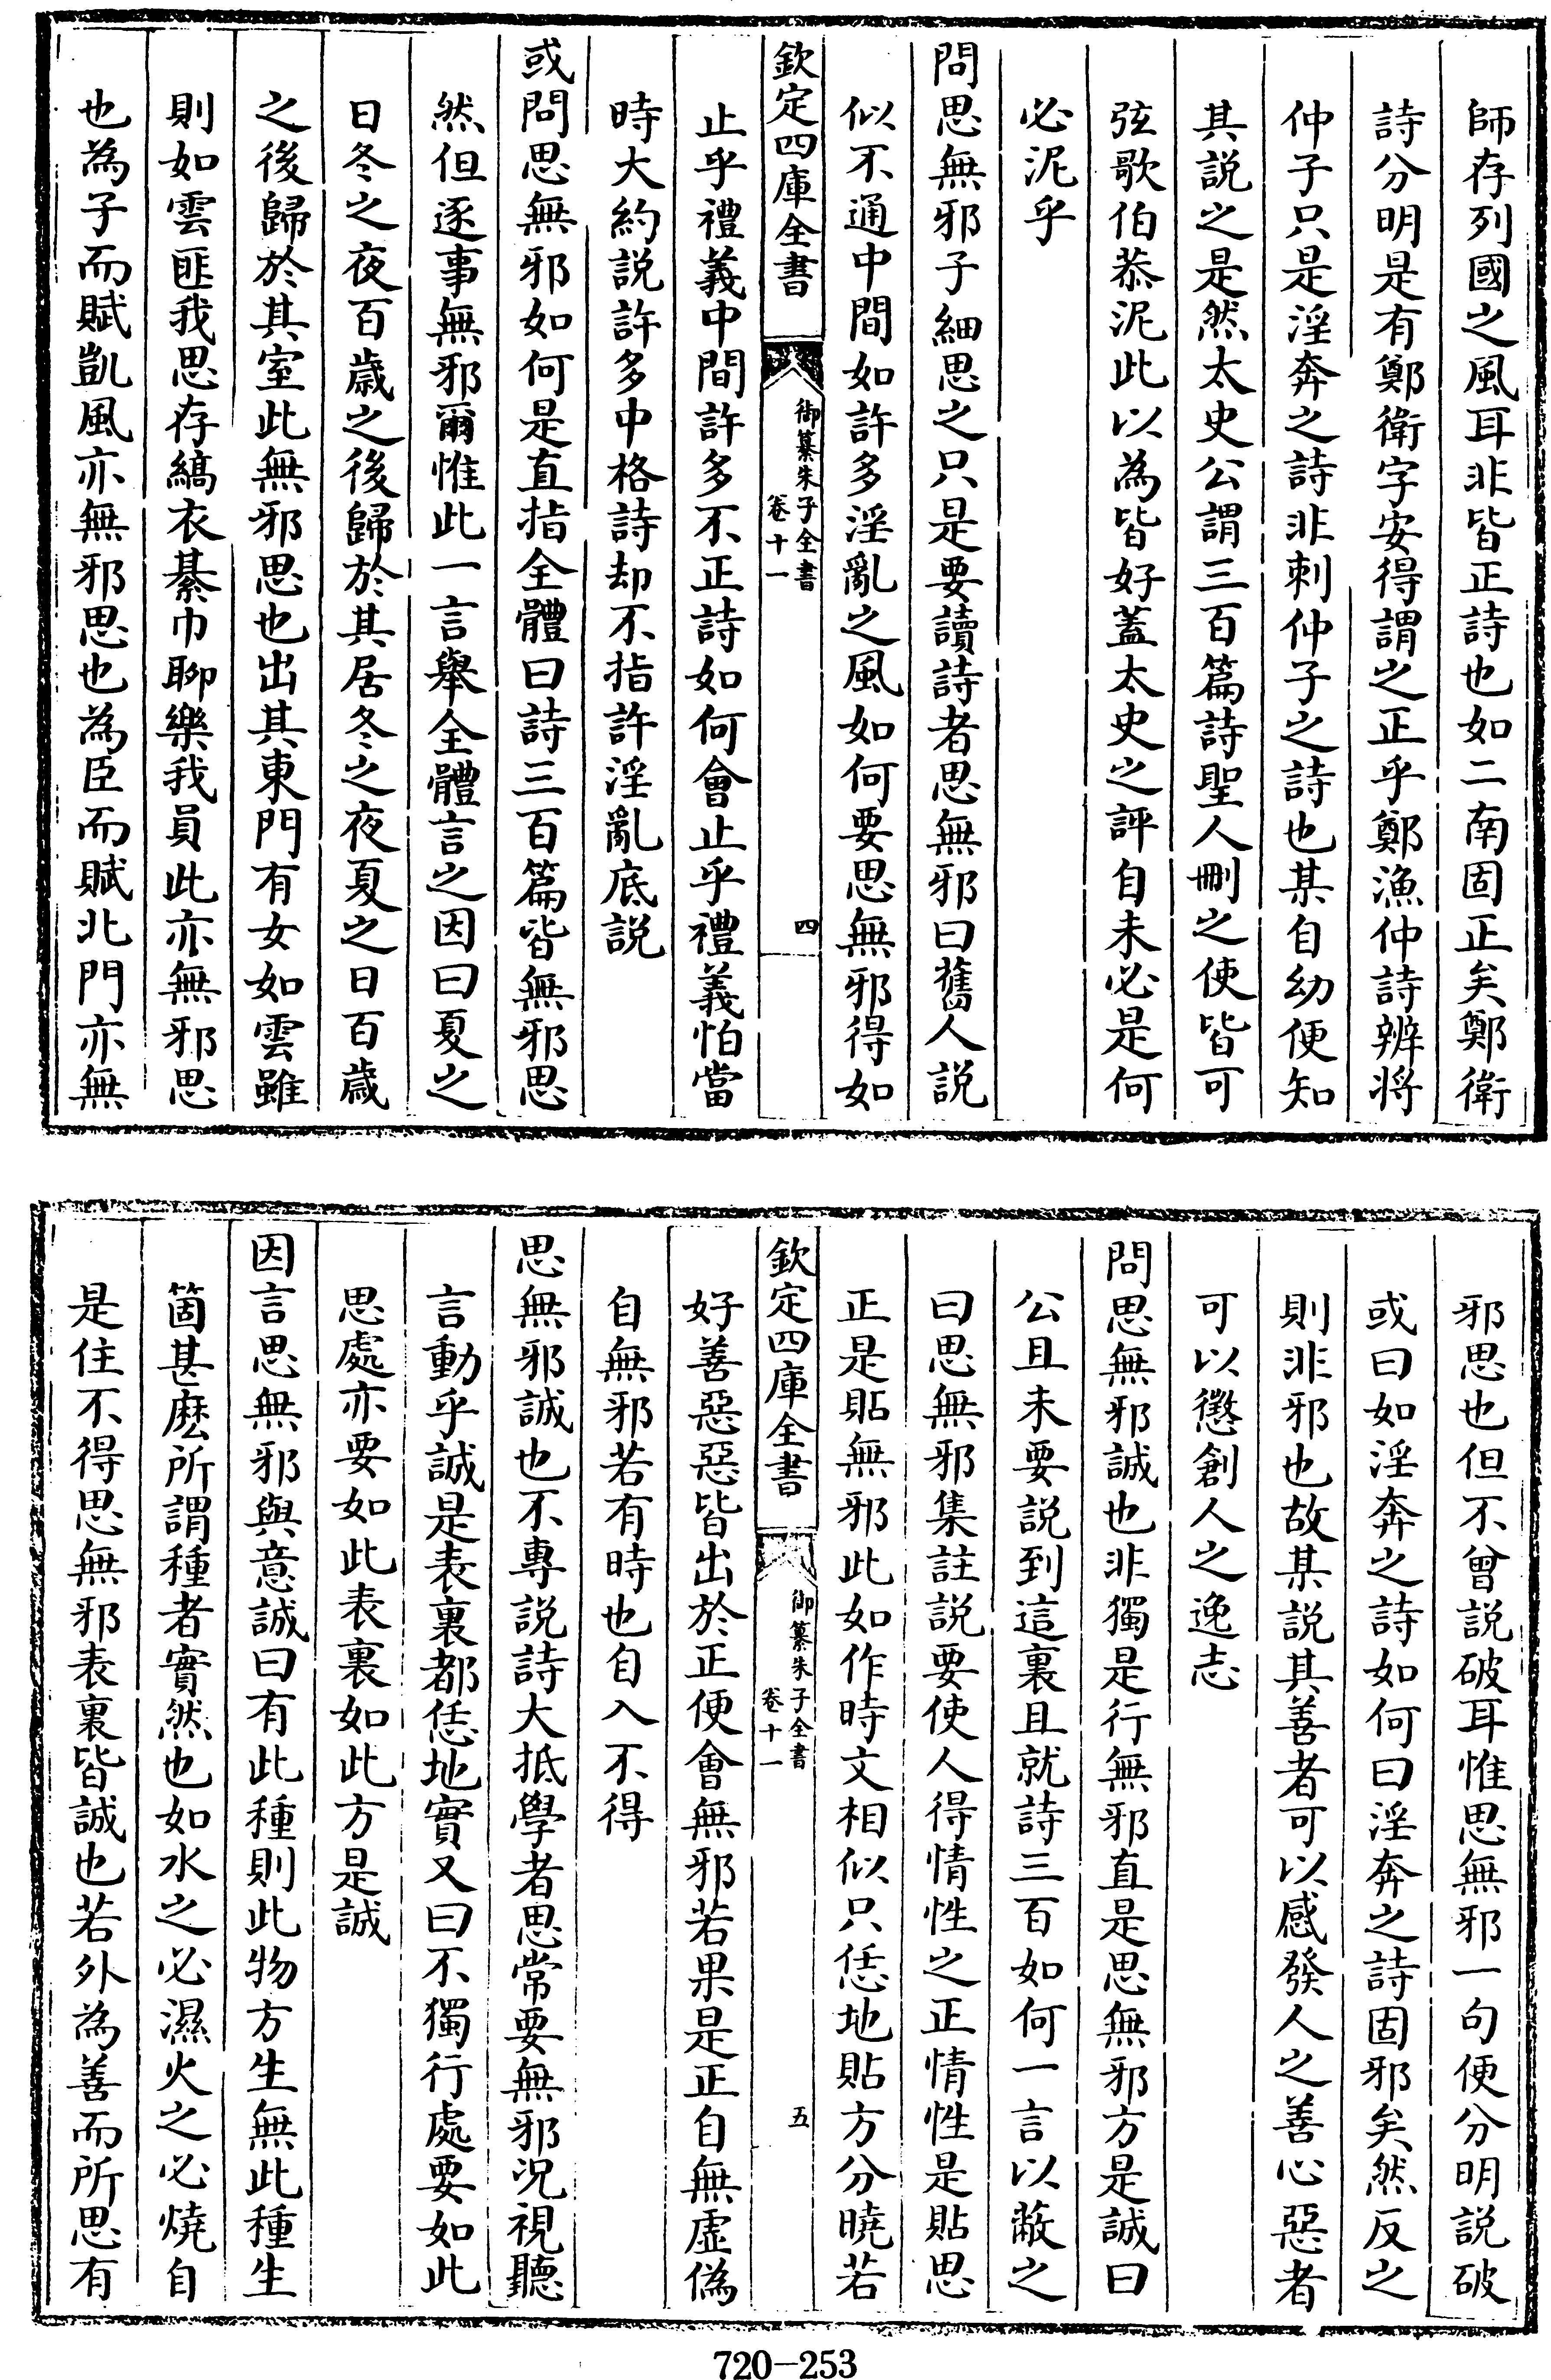 師存列國之風耳非皆正詩也如二南固正矣鄭衛
詩分明是有鄭衛字安得謂之正乎鄭漁仲詩辨將
仲子只是淫奔之詩非刺仲子之詩也某自幼便知
其說之是然太史公謂三百篇詩聖人刪之使皆可
弦歌伯恭泥此以為皆好蓋太史之評自未必是何
必泥乎
問思無邪子細思之只是要讀詩者思無邪曰舊人說
似不通中間如許多淫亂之風如何要思無邪得如
欽定四庫全書
御纂朱子全書
卷十一
四
止乎禮義中間許多不正詩如何會止乎禮義怕當
時大約說許多中格詩却不指許淫亂底說
或問思無邪如何是直指全體曰詩三百篇皆無邪思
然但逐事無邪爾惟此一言舉全體言之因曰夏之
日冬之夜百歲之後歸於其居冬之夜夏之日百歲
之後歸於其室此無邪思也出其東門有女如雲雖
則如雲匪我思存縞衣綦巾聊樂我員此亦無邪思
也為子而賦凱風亦無邪思也為臣而賦北門亦無
邪思也但不曾說破耳惟思無邪一句便分明說破
或曰如淫奔之詩如何曰淫奔之詩固邪矣然反之
則非邪也故某說其善者可以感發人之善心惡者
可以懲創人之逸志
問思無邪誠也非獨是行無邪直是思無邪方是誠曰
公且未要說到這裏且就詩三百如何一言以蔽之
曰思無邪集註說要使人得情性之正情性是貼思
正是貼無邪此如作時文相似只恁地貼方分曉若
欽定四庫全書
御纂朱子全書
卷十一
五
好善惡惡皆出於正便會無邪若果是正自無虛偽
自無邪若有時也自入不得
思無邪誠也不專說詩大抵學者思常要無邪況視聽
言動乎誠是表裏都恁地實又曰不獨行處要如此
思處亦要如此表裏如此方是誠
因言思無邪與意誠曰有此種則此物方生無此種生
箇甚麼所謂種者實然也如水之必濕火之必燒自
是住不得思無邪表裏皆誠也若外為善而所思有
720-253